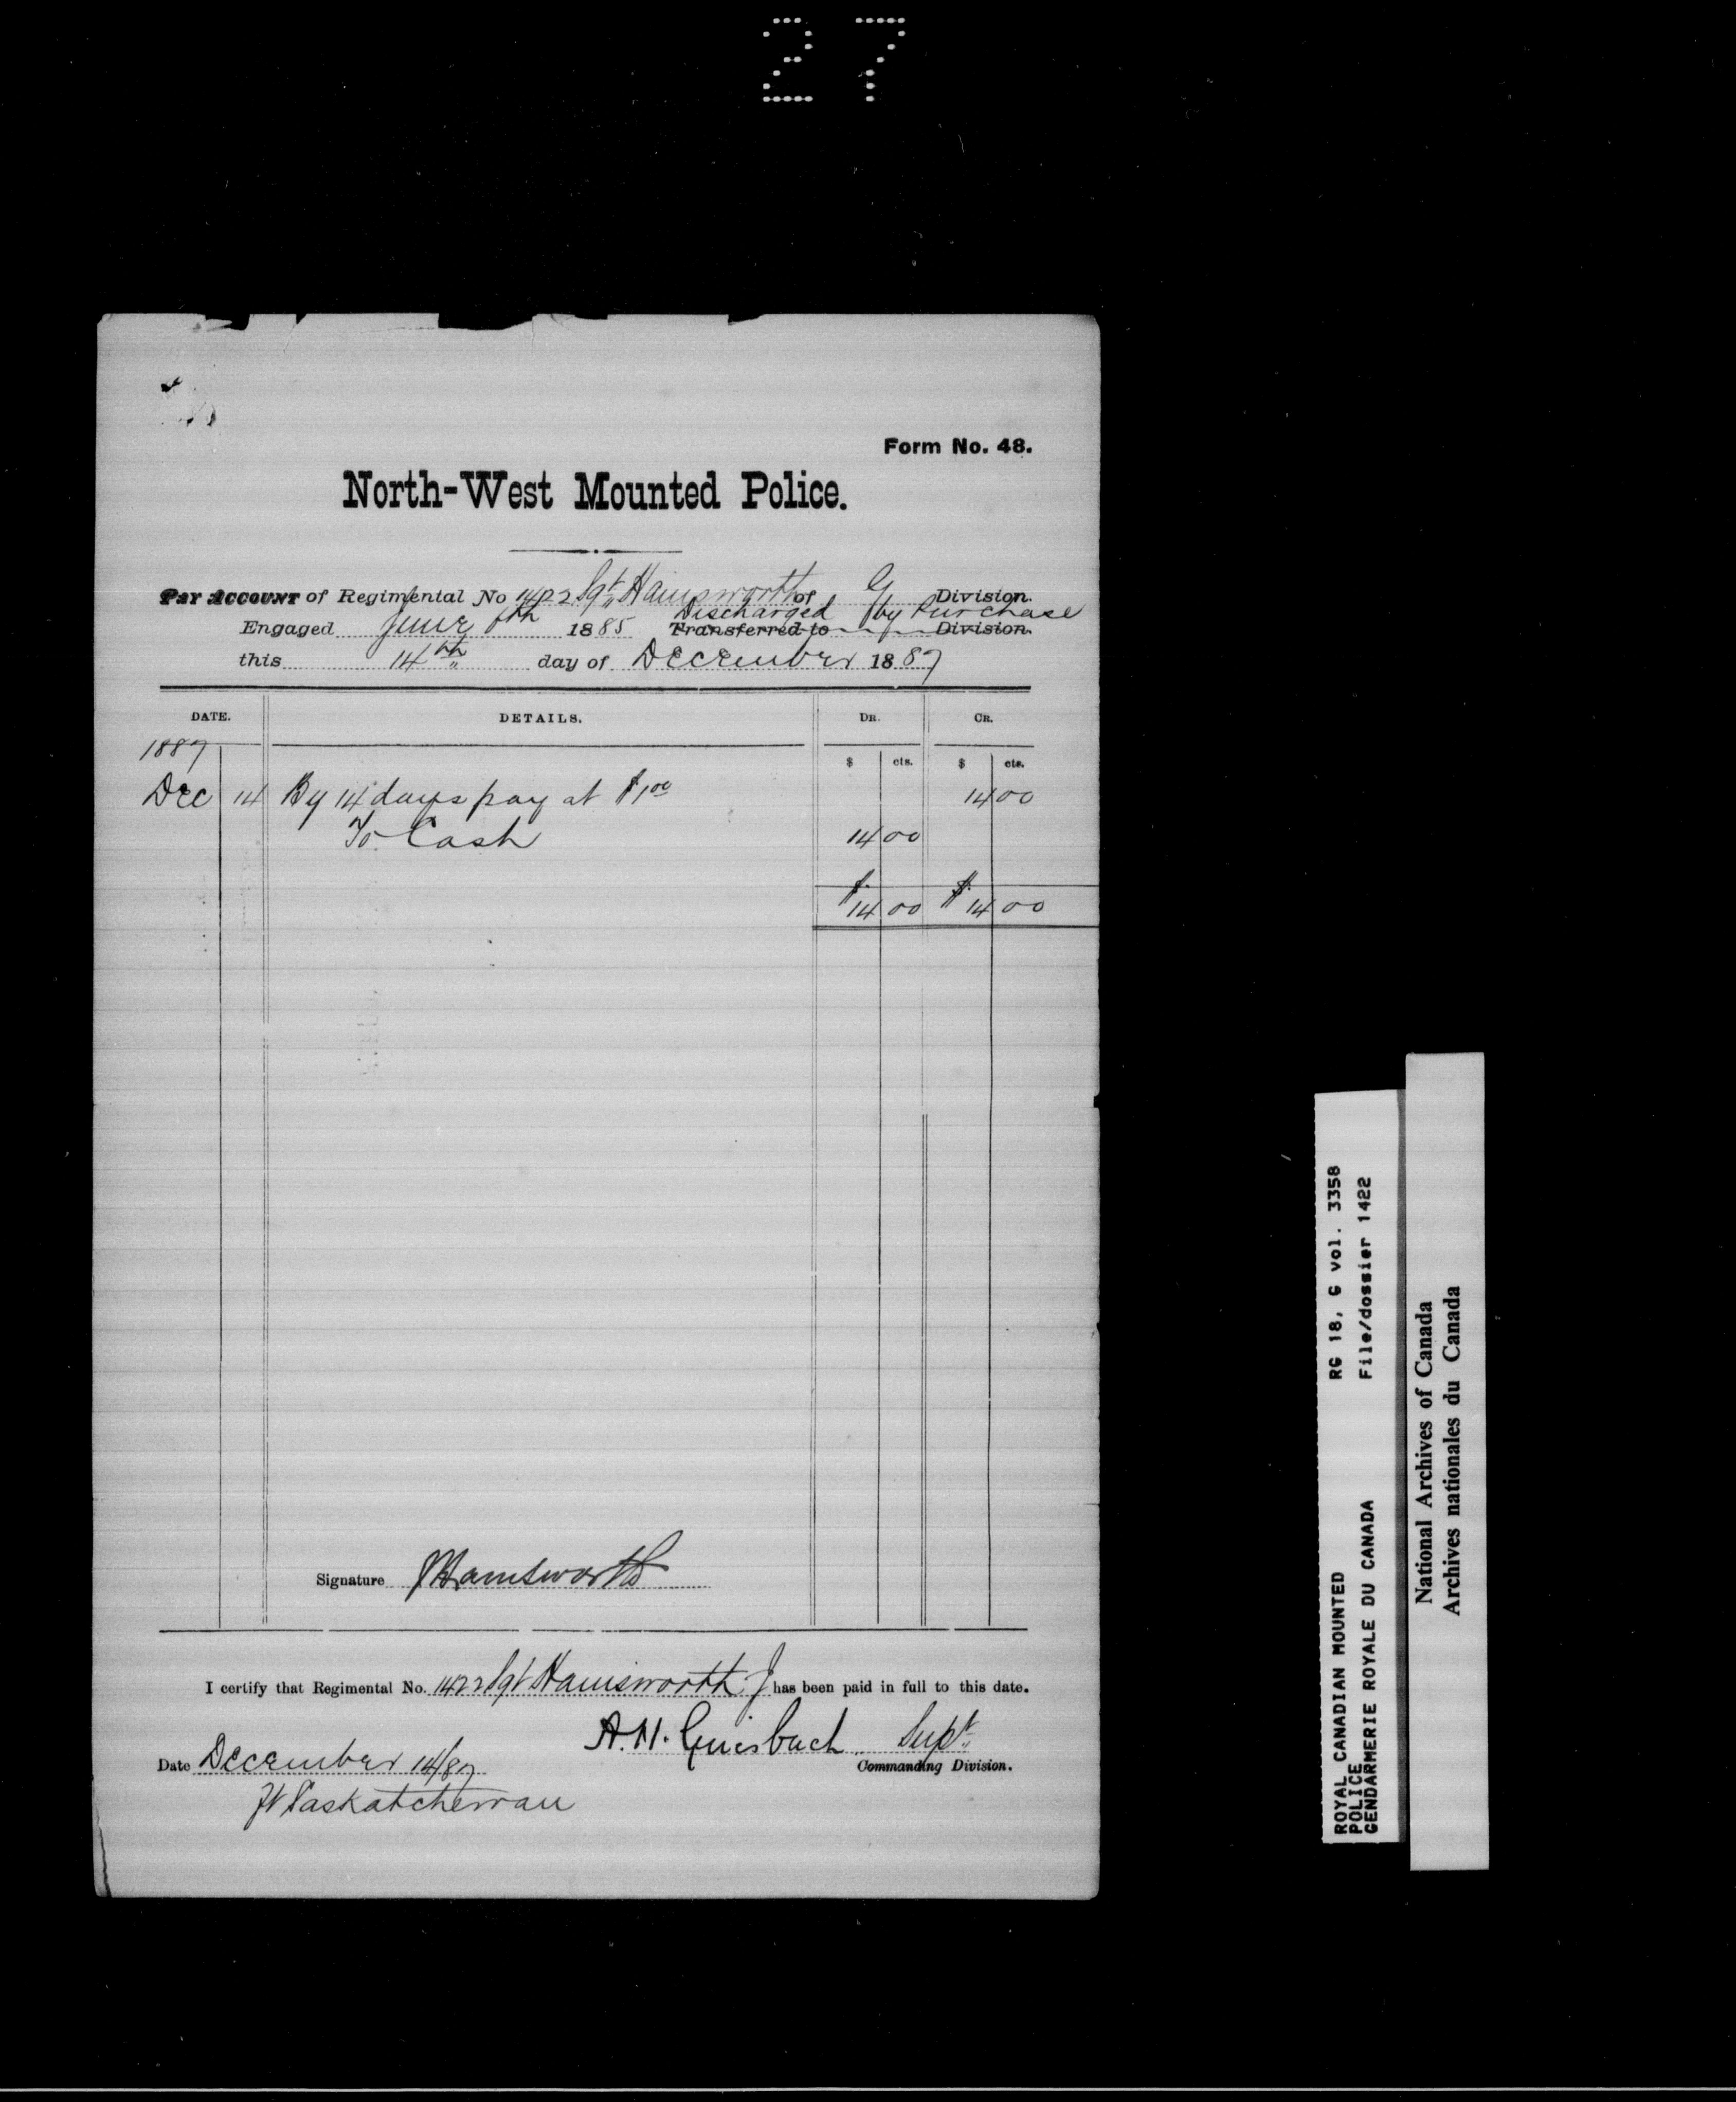 27
Form No. 48.
North-West Mounted Police.
Pay Account of Regimental No 1422 Sgt Hainsworth of G Division.
Discharged by Purchase
Engaged June 1885 Transferred to Division.
this 14th day of December 1887
DATE. DETAILS. DR. CR.
1887
$ cts. $ cts.
Dec 14 By 14 days pay at $1.00 14 00
To Cash 14 00
$14 00 $14 00
Signature J Hainsworth
I certify that Regimental No. 1422 Sgt Hainsworth J has been paid in full to this date.
A.H. Griesbach Supt.
Date December 14/87 Commanding Division.
Ft Saskatchewan
ROYAL CANADIAN MOUNTED RG 18, G vol. 3358
POLICE
GENDARMERIE ROYALE DU CANADA File/dossier 1422
National Archives of Canada
Archives nationales du Canada